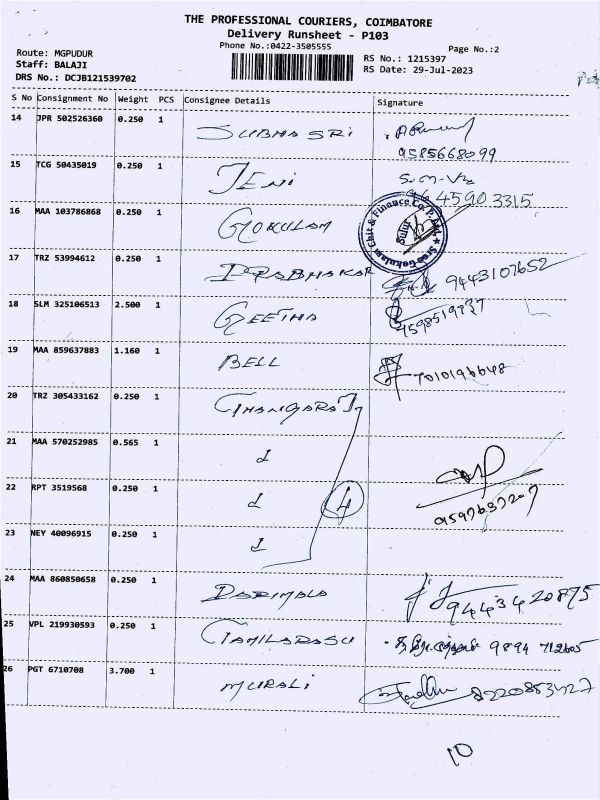 THE PROFESSIONAL COURIERS, COIMBATORE
Delivery Runsheet - P103
Phone No.:0422-3505555
Page No.:2
Route: MGPUDUR
Staff: BALAJI
DRS No.: DCJB121539702
RS No.: 1215397
RS Date: 29-Jul-2023
S No Consignment No Weight PCS Consignee Details Signature
14 JPR 502526360 0.250 1 SUBHA SRI
9585668099
15 TCG 50435019 0.250 1 JENI
9645903315
16 MAA 103786868 0.250 1 GOKULAM
Sree Gokulam Chit & Finance Co. P. Ltd. Sulur
17 TRZ 53994612 0.250 1 PRABHAKAR 9443107652
18 SLM 325106513 2.500 1 GEETHA
19 MAA 859637883 1.160 1 BELL
20 TRZ 305433162 0.250 1 THANGARAJ
21 MAA 570252985 0.565 1
22 RPT 3519568 0.250 1 4
23 NEY 40096915 0.250 1
24 MAA 860850658 0.250 1 PARIMALA 9443420875
25 VPL 219930593 0.250 1 TAMILARASU 9894
26 PGT 6710708 3.700 1 MURALI
10